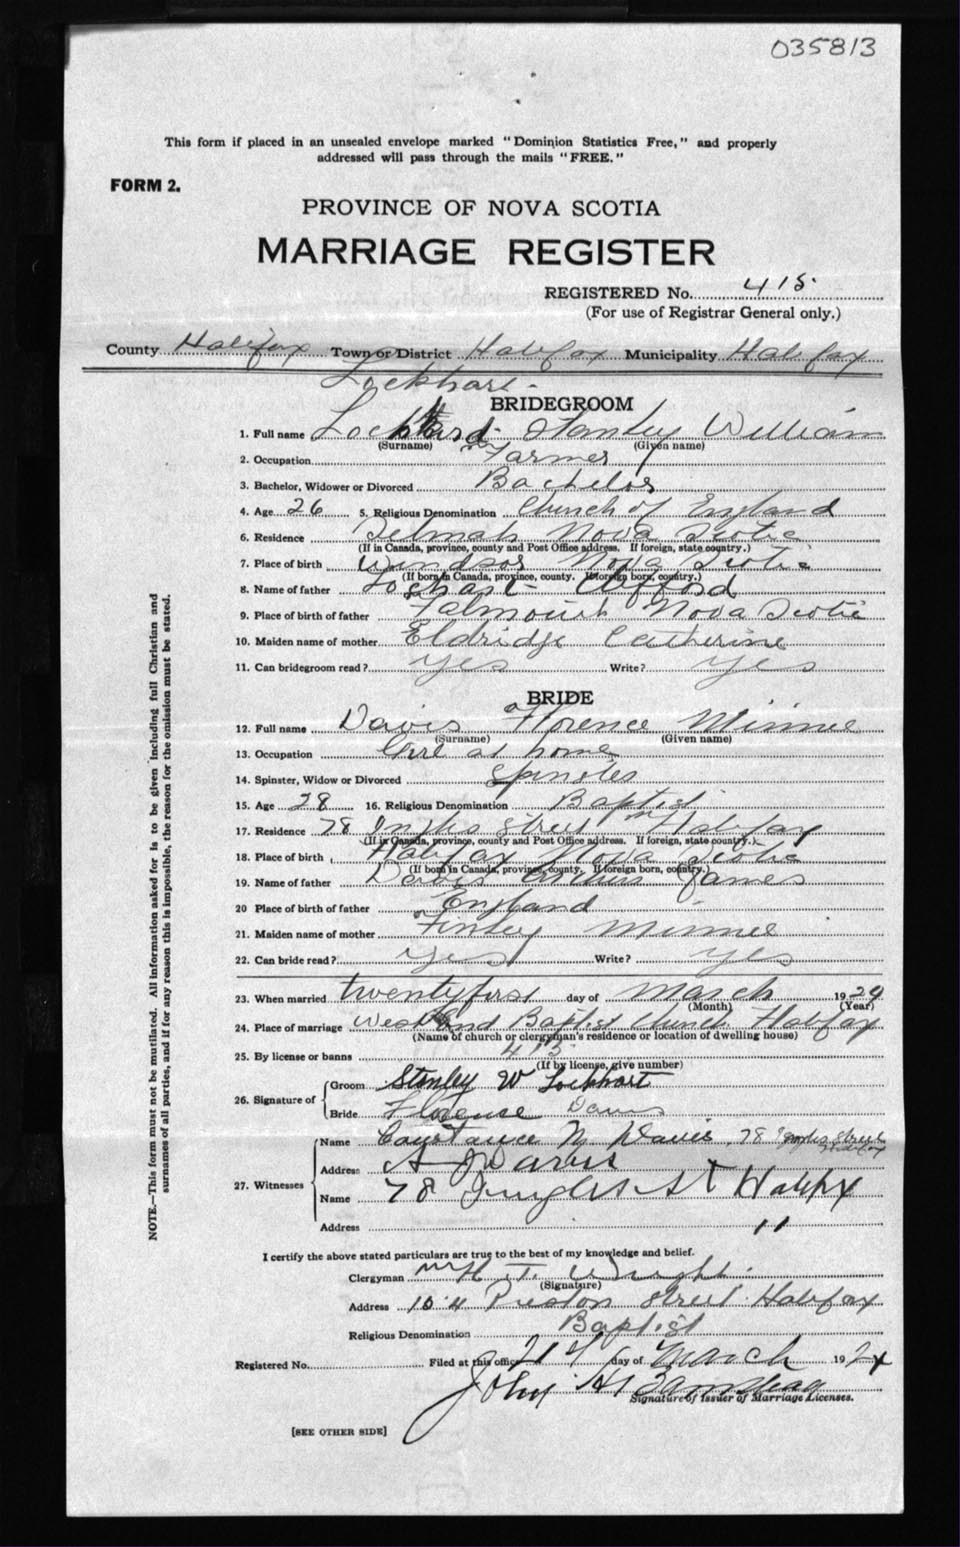 035813
This form if placed in an unsealed envelope marked "Dominion Statistics Free," and properly
addressed will pass through the mails "FREE."
FORM 2.
PROVINCE OF NOVA SCOTIA
MARRIAGE REGISTER
REGISTERED No. 415.
(For use of Registrar General only.)
County Halifax Town or District Halifax Municipality Halifax
Lockhart -
BRIDEGROOM
1. Full name Stanley William
(Surname) (Given name)
2. Occupation Farmer
3. Bachelor, Widower or Divorced Bachelor
4. Age 26 5. Religious Denomination Church of England
6. Residence Nova Scotia
(If in Canada, province, county and Post Office address. If foreign, state country.)
7. Place of birth Windsor Nova Scotia
(If born in Canada, province, county. If foreign born, country.)
8. Name of father Lockhart Clifford
9. Place of birth of father Falmouth Nova Scotia
10. Maiden name of mother Eldridge Catherine
11. Can bridegroom read? yes Write? yes
BRIDE
12. Full name Davis Florence Minnie
(Surname) (Given name)
13. Occupation Girl at home
14. Spinster, Widow or Divorced Spinster
15. Age 28 16. Religious Denomination Baptist
17. Residence 78 Street Halifax
(If in Canada, province, county and Post Office address. If foreign, state country.)
18. Place of birth Halifax Nova Scotia
(If born in Canada, province, county. If foreign born, country.)
19. Name of father Davis James
20 Place of birth of father England
21. Maiden name of mother Finley Minnie
22. Can bride read? Yes Write? yes
23. When married twentyfirst day of March 1924
(Month) (Year)
24. Place of marriage West End Baptist Church Halifax
(Name of church or clergyman's residence or location of dwelling house)
25. By license or banns 413
(If by license, give number)
26. Signature of
Groom Stanley W Lockhart
Bride Florence Davis
27. Witnesses
Name Constance N. Davis, 78 Street
Halifax
Address A J Davis
Name 78 St Halifax
Address "
I certify the above stated particulars are true to the best of my knowledge and belief.
Clergyman H. T. Wright.
(Signature)
Address 104 Preston Street Halifax
Religious Denomination Baptist
Registered No. Filed at this office 21 day of March 1924
John H
Signature of Issuer of Marriage Licenses.
[SEE OTHER SIDE]
NOTE.—This form must not be mutilated. All information asked for is to be given including full Christian and
surnames of all parties, and if for any reason this is impossible, the reason for the omission must be stated.